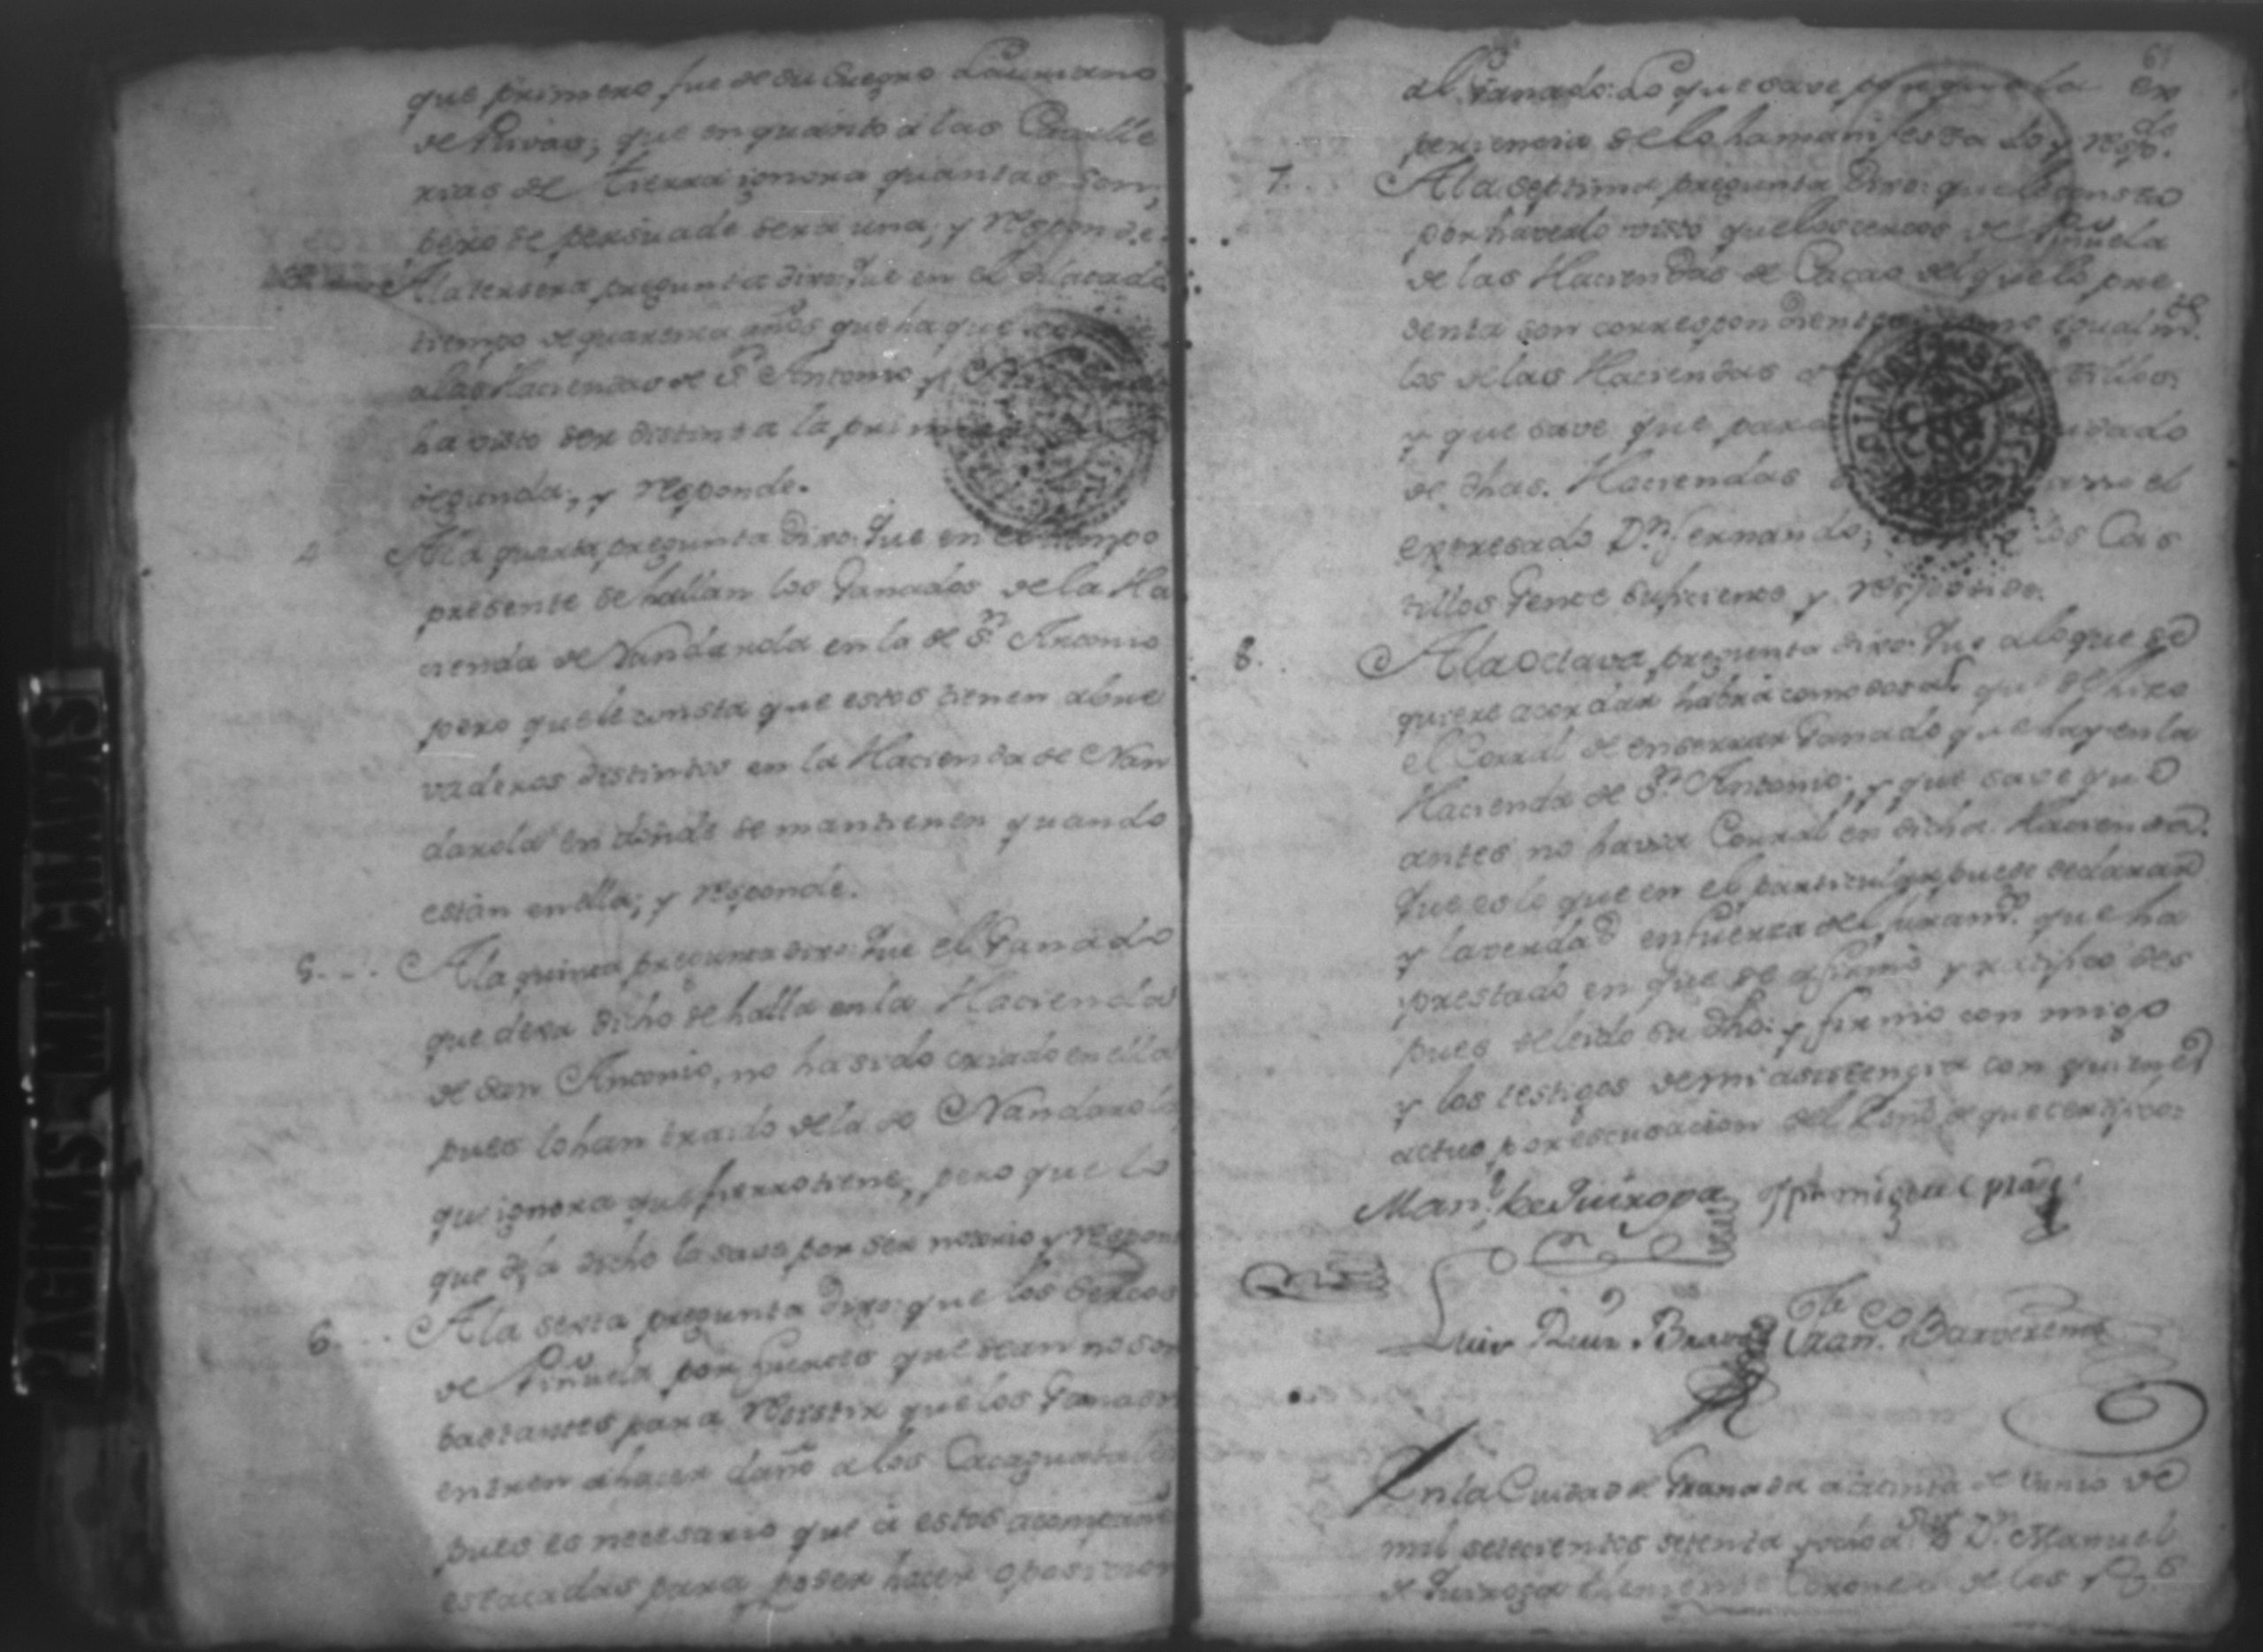 que primero fue de su Suegro Laureano
de Rivas; que en quanto a las Cavalle
rias de tierra ignora quantas son,
pero se persuade sera una, y responde.
A la tersera pregunta dixo: Que en el dilatado
tiempo de quarenta años que ha que
a las Haciendas de Sn. Antonio y
ha visto ser distinta la primera
segunda; y responde.
4 A la quarta pregunta dixo: Que en el tiempo
presente se hallan los Ganados de la Ha
cienda de Nandarola en la de Sn. Antonio
pero que le consta que estos tienen abue
vaderos distintos en la Hacienda de Nan
darola en donde se mantienen quando
están en ella; y responde.
5... A la quinta pregunta dixo: Que el Ganado
que deja dicho se halla en la Hacienda
de San Antonio, no ha sido criado en ella
pues lo han traido de la de Nandarola
que ignora que fierro tiene, pero que lo
que deja dicho lo save por ser notorio y respon
6... A la sexta pregunta dixo: que los sercos
de Piñuela por fuertes que sean no son
bastantes para resistir que los Ganados
entren a hacer daño a los Cacaguatales
pues es necesario que a estos acompañe
estacadas para poder hacer oposicion
61
al Ganado: Lo que save porque la ex
periencia se lo ha manifestado y respde.
7... A la septima pregunta dixo: que le consta
por haverlo visto que los cercos de Piñuela
de las Haciendas de Cacao del que lo pre
senta son correspondientes como igualmte.
los de las Haciendas
y que save que para
de dhas. Haciendas el
expresado Dn. Fernando; los Cas
tillos Gente suficiente y responde.
8... A la octava pregunta dixo: Que a lo que se
quiere acordar habrá como dos años que se hizo
el Corral de enserrar Ganado que hay en la
Hacienda de Sn. Antonio; y que save que
antes no havia Corral en dicha Hacienda.
Que es lo que en el particular puede declarar
y la verdad en fuerza del juramto. que ha
prestado en que se afirmó y ratificó des
pues de leido su dho: y firmó con migo
y los testigos de mi asistencia con quienes
actuo por escusacion del Esno. de que certifico:
Manl. de Quiroga
Luis Ruiz Bravo Franco. Barverena
En la Ciudad de Granada a treinta de Junio de
mil setecientos setenta y ocho a. Yo Dn. Manuel
de Quiroga Theniente Coronel de los Rs. Es
PAGINAS MANCHADAS